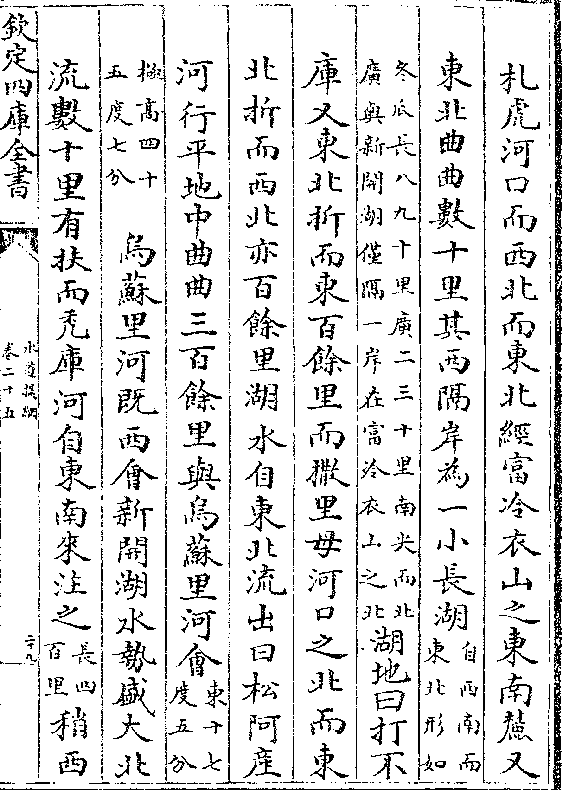 札虎河口而西北而東北經富冷衣山之東南麓又
東北曲曲數十里其西隔岸為一小長湖自西南而東北形如
冬瓜長八九十里廣二三十里南尖而北廣與新開湖僅隔一岸在富冷衣山之北湖地曰打不
庫又東北折而東百餘里而撒里毋河口之北而東
北折而西北亦百餘里湖水自東北流出曰松阿產
河行平地中曲曲三百餘里與烏蘇里河會東十七度五分
極高四十五度七分烏蘇里河既西會新開湖水勢盛大北
流數十里有扶而禿庫河自東南來注之長四百里稍西
欽定四庫全書
水道提綱
卷二十五
二十九